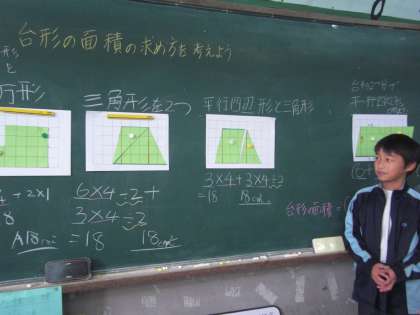 台形の面積の求め方を考えよう
形
と
方形
三角形を2つ
平行四辺形と三角形
4 + 2×1
8
A18cm²
6×4÷2+
3×4÷2
=18
18cm²
3×4+3×4÷2
=18
18cm²
台形2つで
平行四辺形
台形面積=